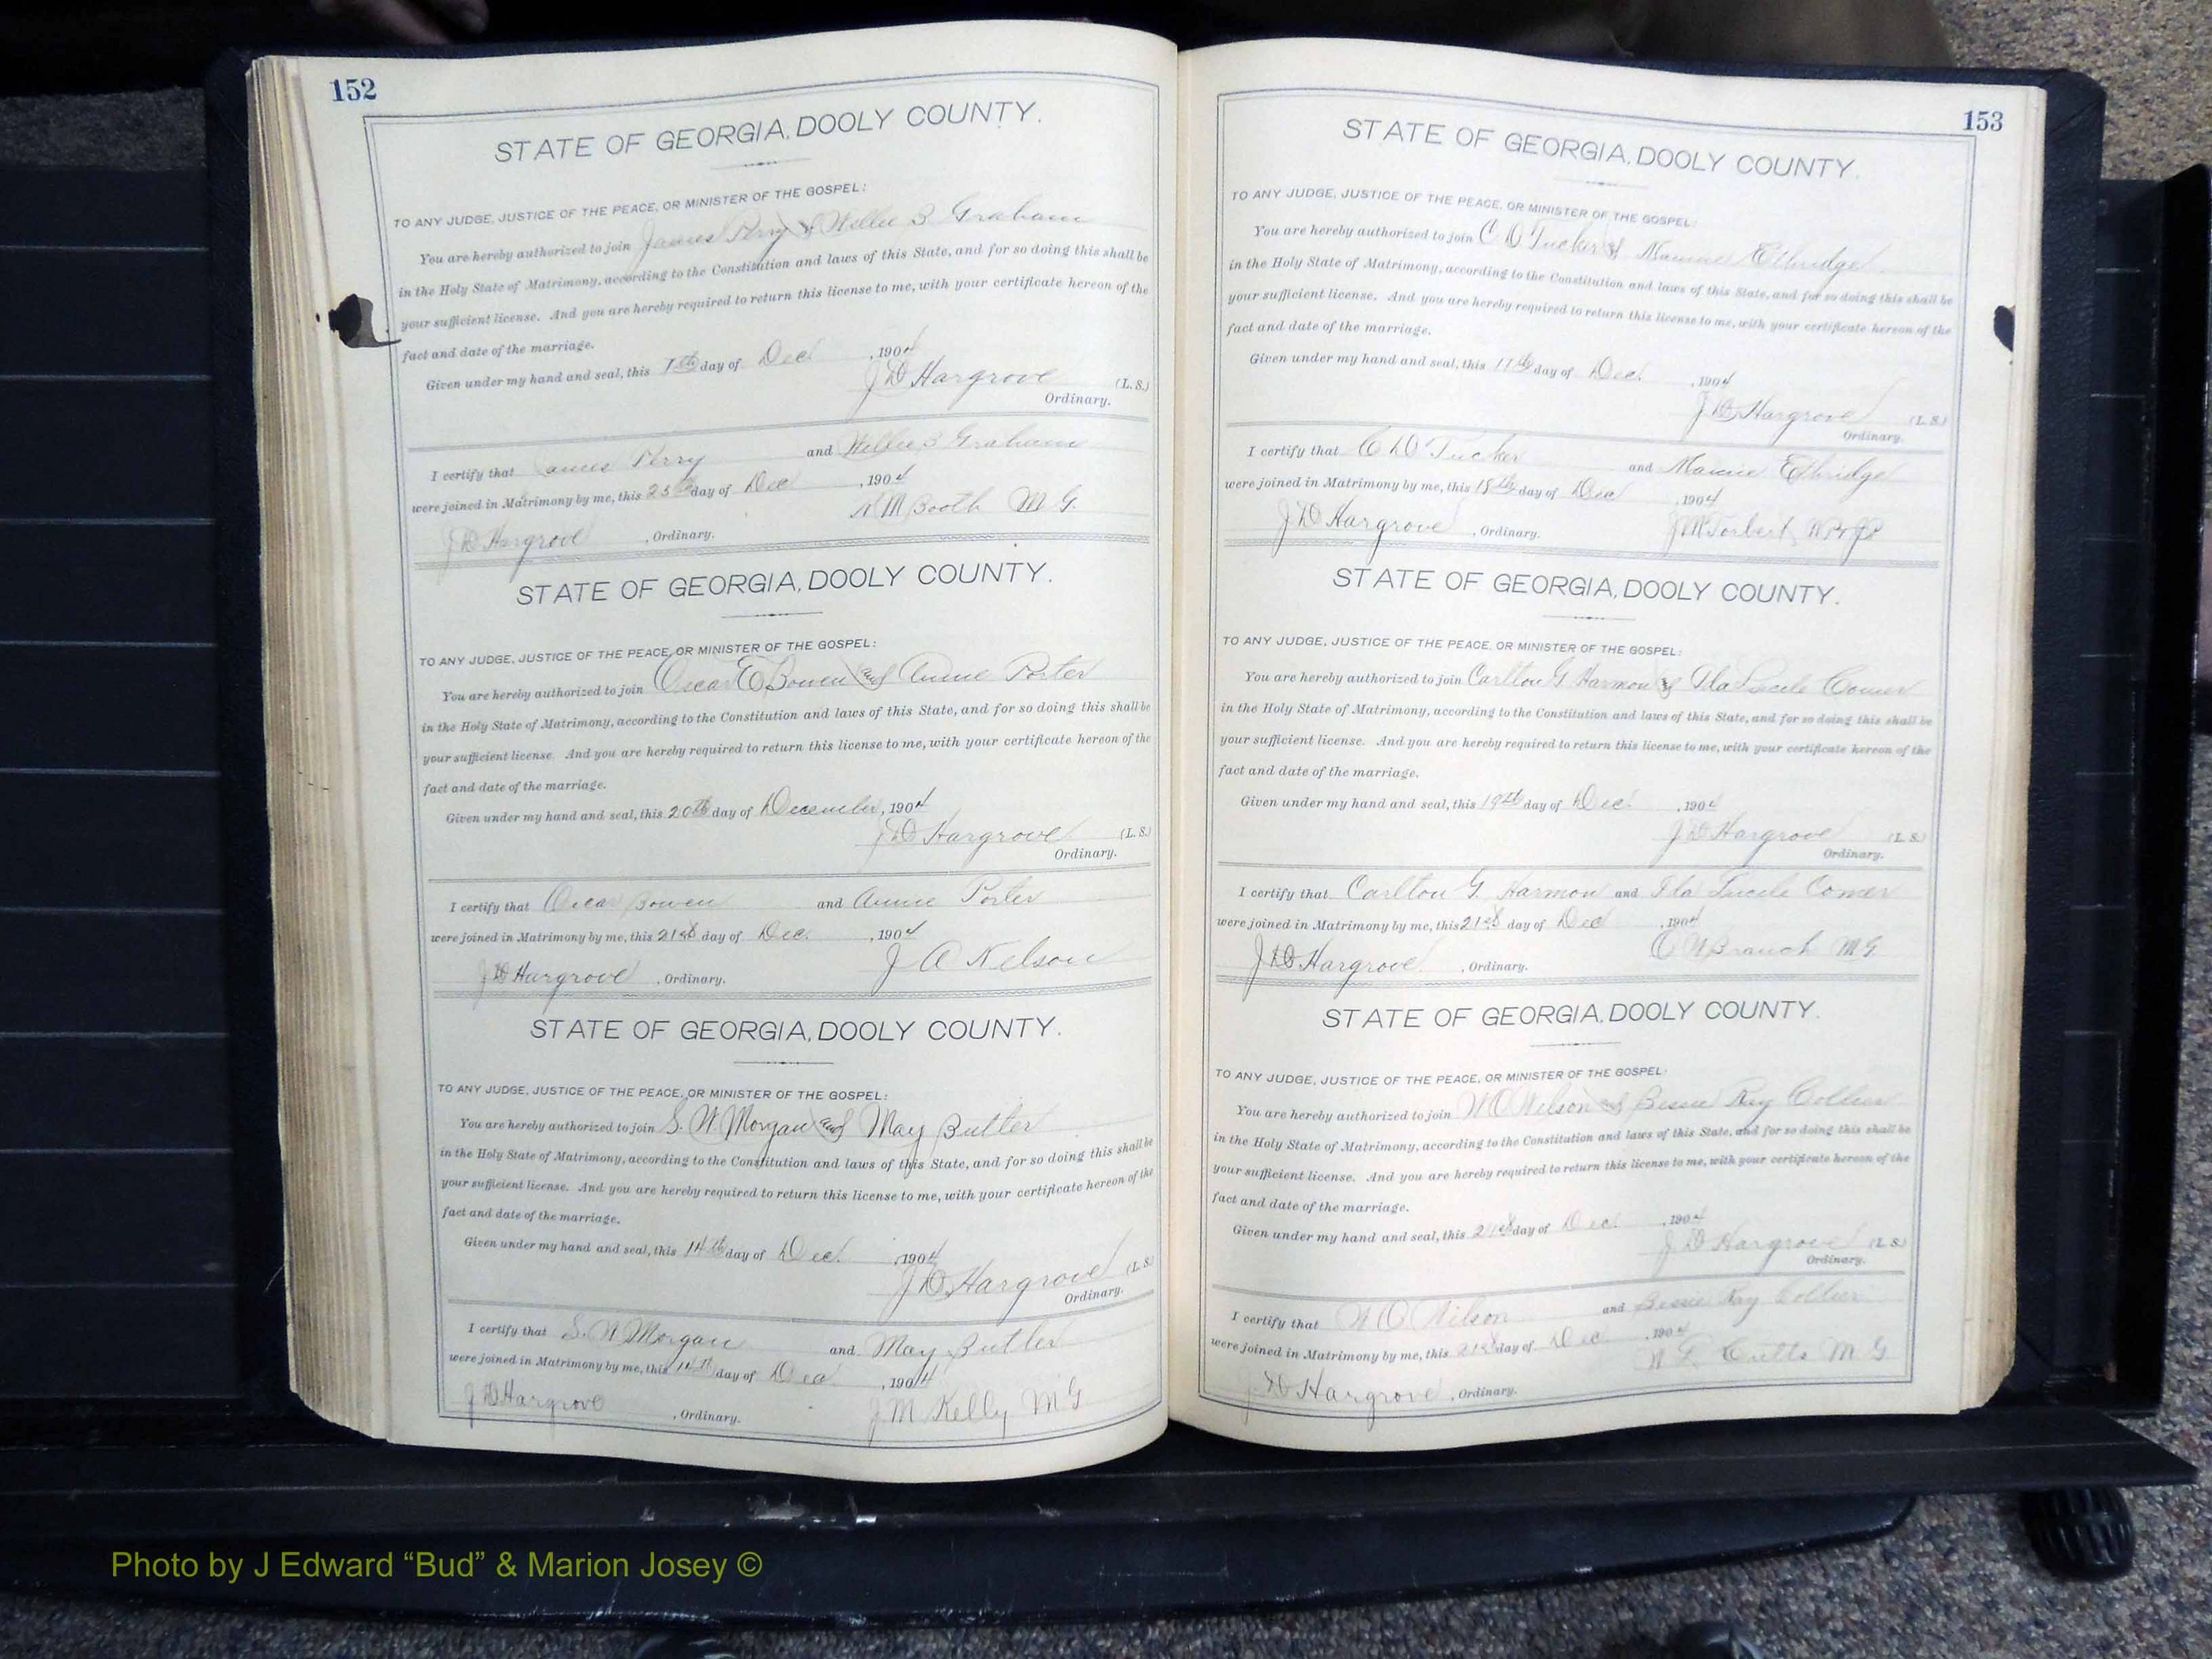 152
STATE OF GEORGIA, DOOLY COUNTY.
TO ANY JUDGE, JUSTICE OF THE PEACE, OR MINISTER OF THE GOSPEL:
You are hereby authorized to join James Perry & Willie B Graham
in the Holy State of Matrimony, according to the Constitution and laws of this State, and for so doing this shall be
your sufficient license. And you are hereby required to return this license to me, with your certificate hereon of the
fact and date of the marriage.
Given under my hand and seal, this day of Dec. , 1904
J D Hargrove (L. S.)
Ordinary.
I certify that James Perry and Willie B Graham
were joined in Matrimony by me, this 25th day of Dec , 1904
M Booth M G.
J D Hargrove , Ordinary.
STATE OF GEORGIA, DOOLY COUNTY.
TO ANY JUDGE, JUSTICE OF THE PEACE, OR MINISTER OF THE GOSPEL:
You are hereby authorized to join Oscar E Bowen and Annie Porter
in the Holy State of Matrimony, according to the Constitution and laws of this State, and for so doing this shall be
your sufficient license. And you are hereby required to return this license to me, with your certificate hereon of the
fact and date of the marriage.
Given under my hand and seal, this 20th day of December, 1904
J D Hargrove (L. S.)
Ordinary.
I certify that Oscar Bowen and Annie Porter
were joined in Matrimony by me, this 21st day of Dec. , 1904
J A Nelson
J D Hargrove , Ordinary.
STATE OF GEORGIA, DOOLY COUNTY.
TO ANY JUDGE, JUSTICE OF THE PEACE, OR MINISTER OF THE GOSPEL:
You are hereby authorized to join S. W. Morgan and May Butler
in the Holy State of Matrimony, according to the Constitution and laws of this State, and for so doing this shall be
your sufficient license. And you are hereby required to return this license to me, with your certificate hereon of the
fact and date of the marriage.
Given under my hand and seal, this 14th day of Dec. , 1904
J D Hargrove (L. S.)
Ordinary.
I certify that S. W Morgan and May Butler
were joined in Matrimony by me, this 14th day of Dec , 1904
J M Kelly M G
J D Hargrove , Ordinary.
153
STATE OF GEORGIA, DOOLY COUNTY.
TO ANY JUDGE, JUSTICE OF THE PEACE, OR MINISTER OF THE GOSPEL:
You are hereby authorized to join C D Tucker & Mamie Ethridge
in the Holy State of Matrimony, according to the Constitution and laws of this State, and for so doing this shall be
your sufficient license. And you are hereby required to return this license to me, with your certificate hereon of the
fact and date of the marriage.
Given under my hand and seal, this 17th day of Dec. , 1904
J D Hargrove (L. S.)
Ordinary.
I certify that C D Tucker and Mamie Ethridge
were joined in Matrimony by me, this 18th day of Dec , 1904
J M Torbert
J D Hargrove , Ordinary.
STATE OF GEORGIA, DOOLY COUNTY.
TO ANY JUDGE, JUSTICE OF THE PEACE, OR MINISTER OF THE GOSPEL:
You are hereby authorized to join Carlton G Harmon & Ila Lucile Comer
in the Holy State of Matrimony, according to the Constitution and laws of this State, and for so doing this shall be
your sufficient license. And you are hereby required to return this license to me, with your certificate hereon of the
fact and date of the marriage.
Given under my hand and seal, this 19th day of Dec. , 1904
J D Hargrove (L. S.)
Ordinary.
I certify that Carlton G. Harmon and Ila Lucile Comer
were joined in Matrimony by me, this 21st day of Dec , 1904
Branch M G
J D Hargrove , Ordinary.
STATE OF GEORGIA, DOOLY COUNTY.
TO ANY JUDGE, JUSTICE OF THE PEACE, OR MINISTER OF THE GOSPEL:
You are hereby authorized to join W O Wilson and Bessie Ray Collier
in the Holy State of Matrimony, according to the Constitution and laws of this State, and for so doing this shall be
your sufficient license. And you are hereby required to return this license to me, with your certificate hereon of the
fact and date of the marriage.
Given under my hand and seal, this 21st day of Dec. , 1904
J D Hargrove (L. S.)
Ordinary.
I certify that W O Wilson and Bessie Ray Collier
were joined in Matrimony by me, this 21st day of Dec , 1904
Cutts M G
J D Hargrove , Ordinary.
Photo by J Edward “Bud” & Marion Josey ©